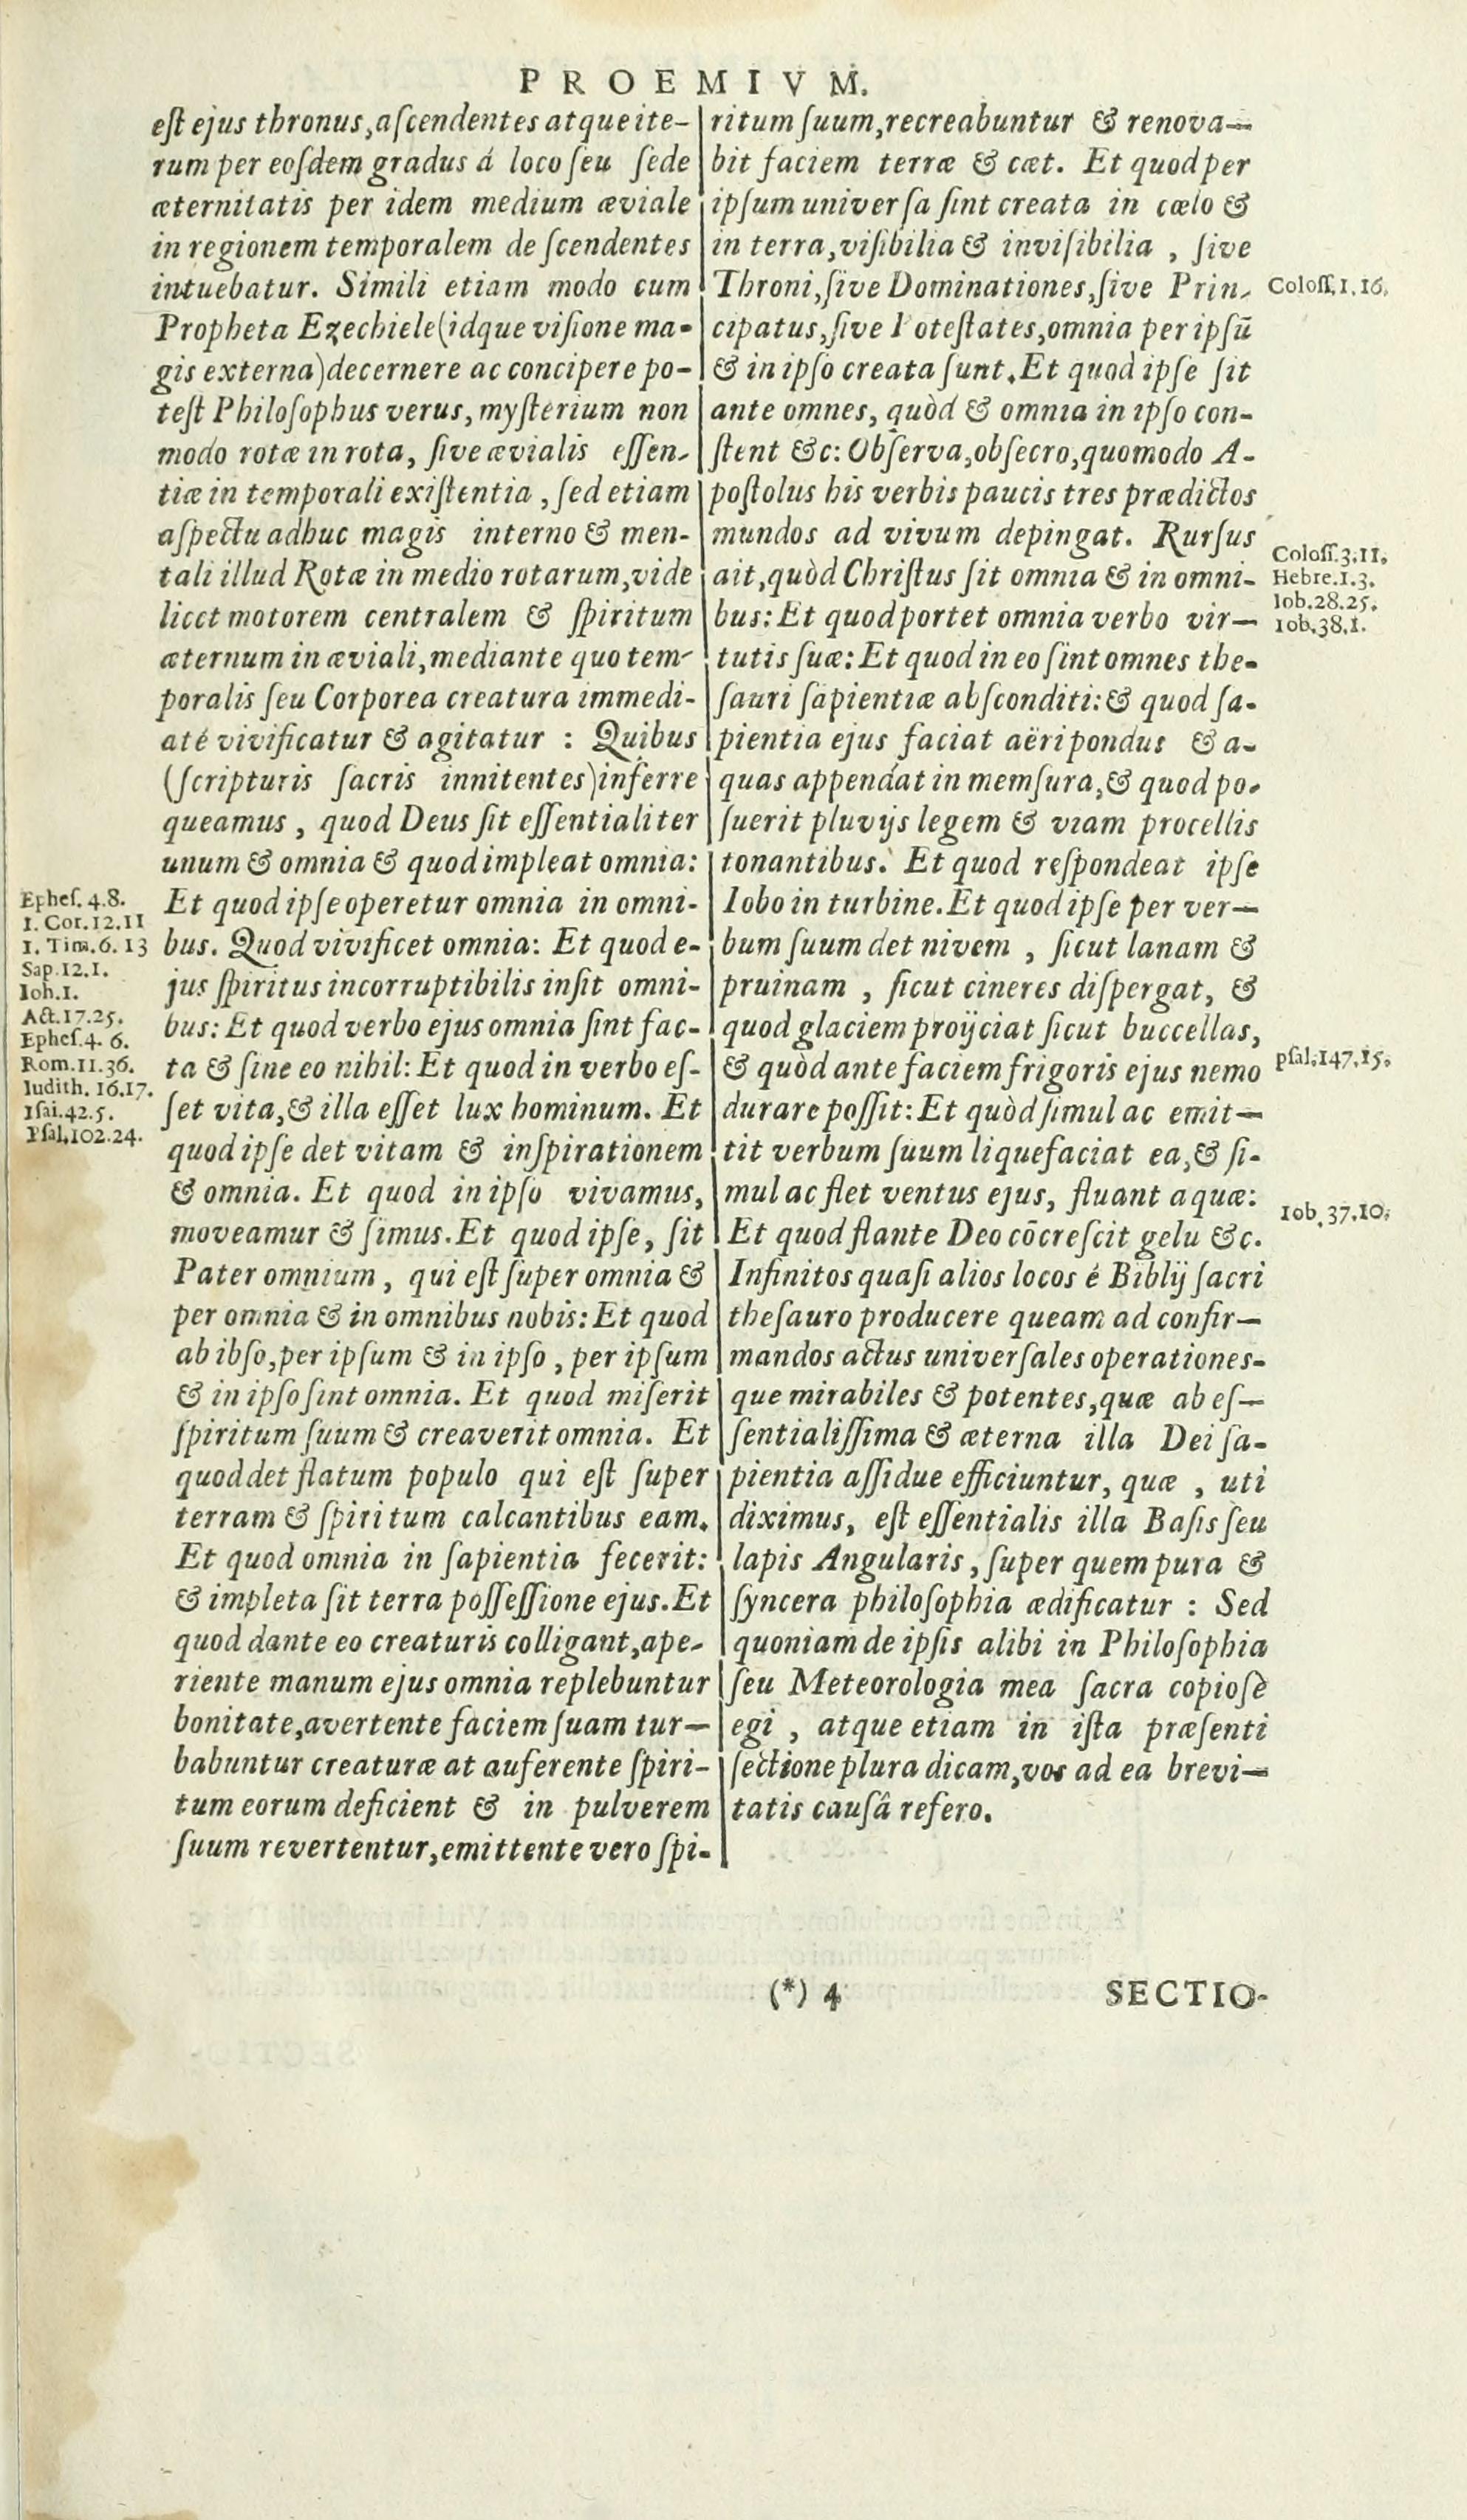 PROEMIVM.
eſt ejus thronus, aſcendentes atque ite-
rum per eoſdem gradus á loco ſeu ſede
æternitatis per idem medium æviale
in regionem temporalem deſcendentes
intuebatur. Simili etiam modo cum
Propheta Ezechiele (idque viſione ma-
gis externa) decernere ac concipere po-
teſt Philoſophus verus, myſterium non
modo rotæ in rota, ſive ævialis eſſen-
tiæ in temporali exiſtentia, ſed etiam
aſpectu adhuc magis interno & men-
tali illud Rotæ in medio rotarum, vide
licet motorem centralem & ſpiritum
æternum in æviali, mediante quo tem-
poralis ſeu Corporea creatura immedi-
até vivificatur & agitatur : Quibus
(ſcripturis ſacris innitentes) inferre
queamus, quod Deus ſit eſſentialiter
unum & omnia & quod impleat omnia:
Et quod ipſe operetur omnia in omni-
bus. Quod vivificet omnia: Et quod e-
jus ſpiritus incorruptibilis inſit omni-
bus: Et quod verbo ejus omnia ſint fac-
ta & ſine eo nihil: Et quod in verbo eſ-
ſet vita, & illa eſſet lux hominum. Et
quod ipſe det vitam & inſpirationem
& omnia. Et quod in ipſo vivamus,
moveamur & ſimus. Et quod ipſe, ſit
Pater omnium, qui eſt ſuper omnia &
per omnia & in omnibus nobis: Et quod
ab ibſo, per ipſum & in ipſo, per ipſum
& in ipſo ſint omnia. Et quod miſerit
ſpiritum ſuum & creaverit omnia. Et
quod det flatum populo qui eſt ſuper
terram & ſpiritum calcantibus eam.
Et quod omnia in ſapientia fecerit:
& impleta ſit terra poſſeſſione ejus. Et
quod dante eo creaturis colligant, ape-
riente manum ejus omnia replebuntur
bonitate, avertente faciem ſuam tur-
babuntur creaturæ at auferente ſpiri-
tum eorum deficient & in pulverem
ſuum revertentur, emittente vero ſpi-
Epheſ. 4.8.
1. Cor. 12.11
1. Tim. 6. 13
Sap. 12.1.
Ioh. 1.
Act. 17.25.
Epheſ. 4. 6.
Rom. 11.36.
Iudith. 16.17.
Iſai. 42.5.
Pſal. 102.24.
ritum ſuum, recreabuntur & renova-
bit faciem terræ & cæt. Et quod per
ipſum univerſa ſint creata in cœlo &
in terra, viſibilia & inviſibilia, ſive
Throni, ſive Dominationes, ſive Prin-
cipatus, ſive Poteſtates, omnia per ipſũ
& in ipſo creata ſunt. Et quod ipſe ſit
ante omnes, quòd & omnia in ipſo con-
ſtent &c: Obſerva, obſecro, quomodo A-
poſtolus his verbis paucis tres prædictos
mundos ad vivum depingat. Rurſus
ait, quòd Chriſtus ſit omnia & in omni-
bus: Et quod portet omnia verbo vir-
tutis ſuæ: Et quod in eo ſint omnes the-
ſauri ſapientiæ abſconditi: & quod ſa-
pientia ejus faciat aëri pondus & a-
quas appendat in memſura, & quod po-
ſuerit pluvijs legem & viam procellis
tonantibus. Et quod reſpondeat ipſe
Iobo in turbine. Et quod ipſe per ver-
bum ſuum det nivem, ſicut lanam &
pruinam, ſicut cineres diſpergat, &
quod glaciem proijciat ſicut buccellas,
& quòd ante faciem frigoris ejus nemo
durare poſſit: Et quòd ſimul ac emit-
tit verbum ſuum liquefaciat ea, & ſi-
mul ac flet ventus ejus, fluant aquæ:
Et quod flante Deo cōcreſcit gelu &c.
Infinitos quaſi alios locos é Biblij ſacri
theſauro producere queam ad confir-
mandos actus univerſales operationes-
que mirabiles & potentes, quæ ab eſ-
ſentialiſſima & æterna illa Dei ſa-
pientia aſſidue efficiuntur, quæ, uti
diximus, eſt eſſentialis illa Baſis ſeu
lapis Angularis, ſuper quem pura &
ſyncera philoſophia ædificatur : Sed
quoniam de ipſis alibi in Philoſophia
ſeu Meteorologia mea ſacra copioſè
egi, atque etiam in iſta præſenti
ſectione plura dicam, vos ad ea brevi-
tatis cauſâ refero.
Coloſſ. 1. 16.
Coloſſ. 3. 11.
Hebre. 1. 3.
Iob. 28. 25.
Iob. 38. 1.
pſal. 147. 15.
Iob. 37. 10.
(*) 4
SECTIO-